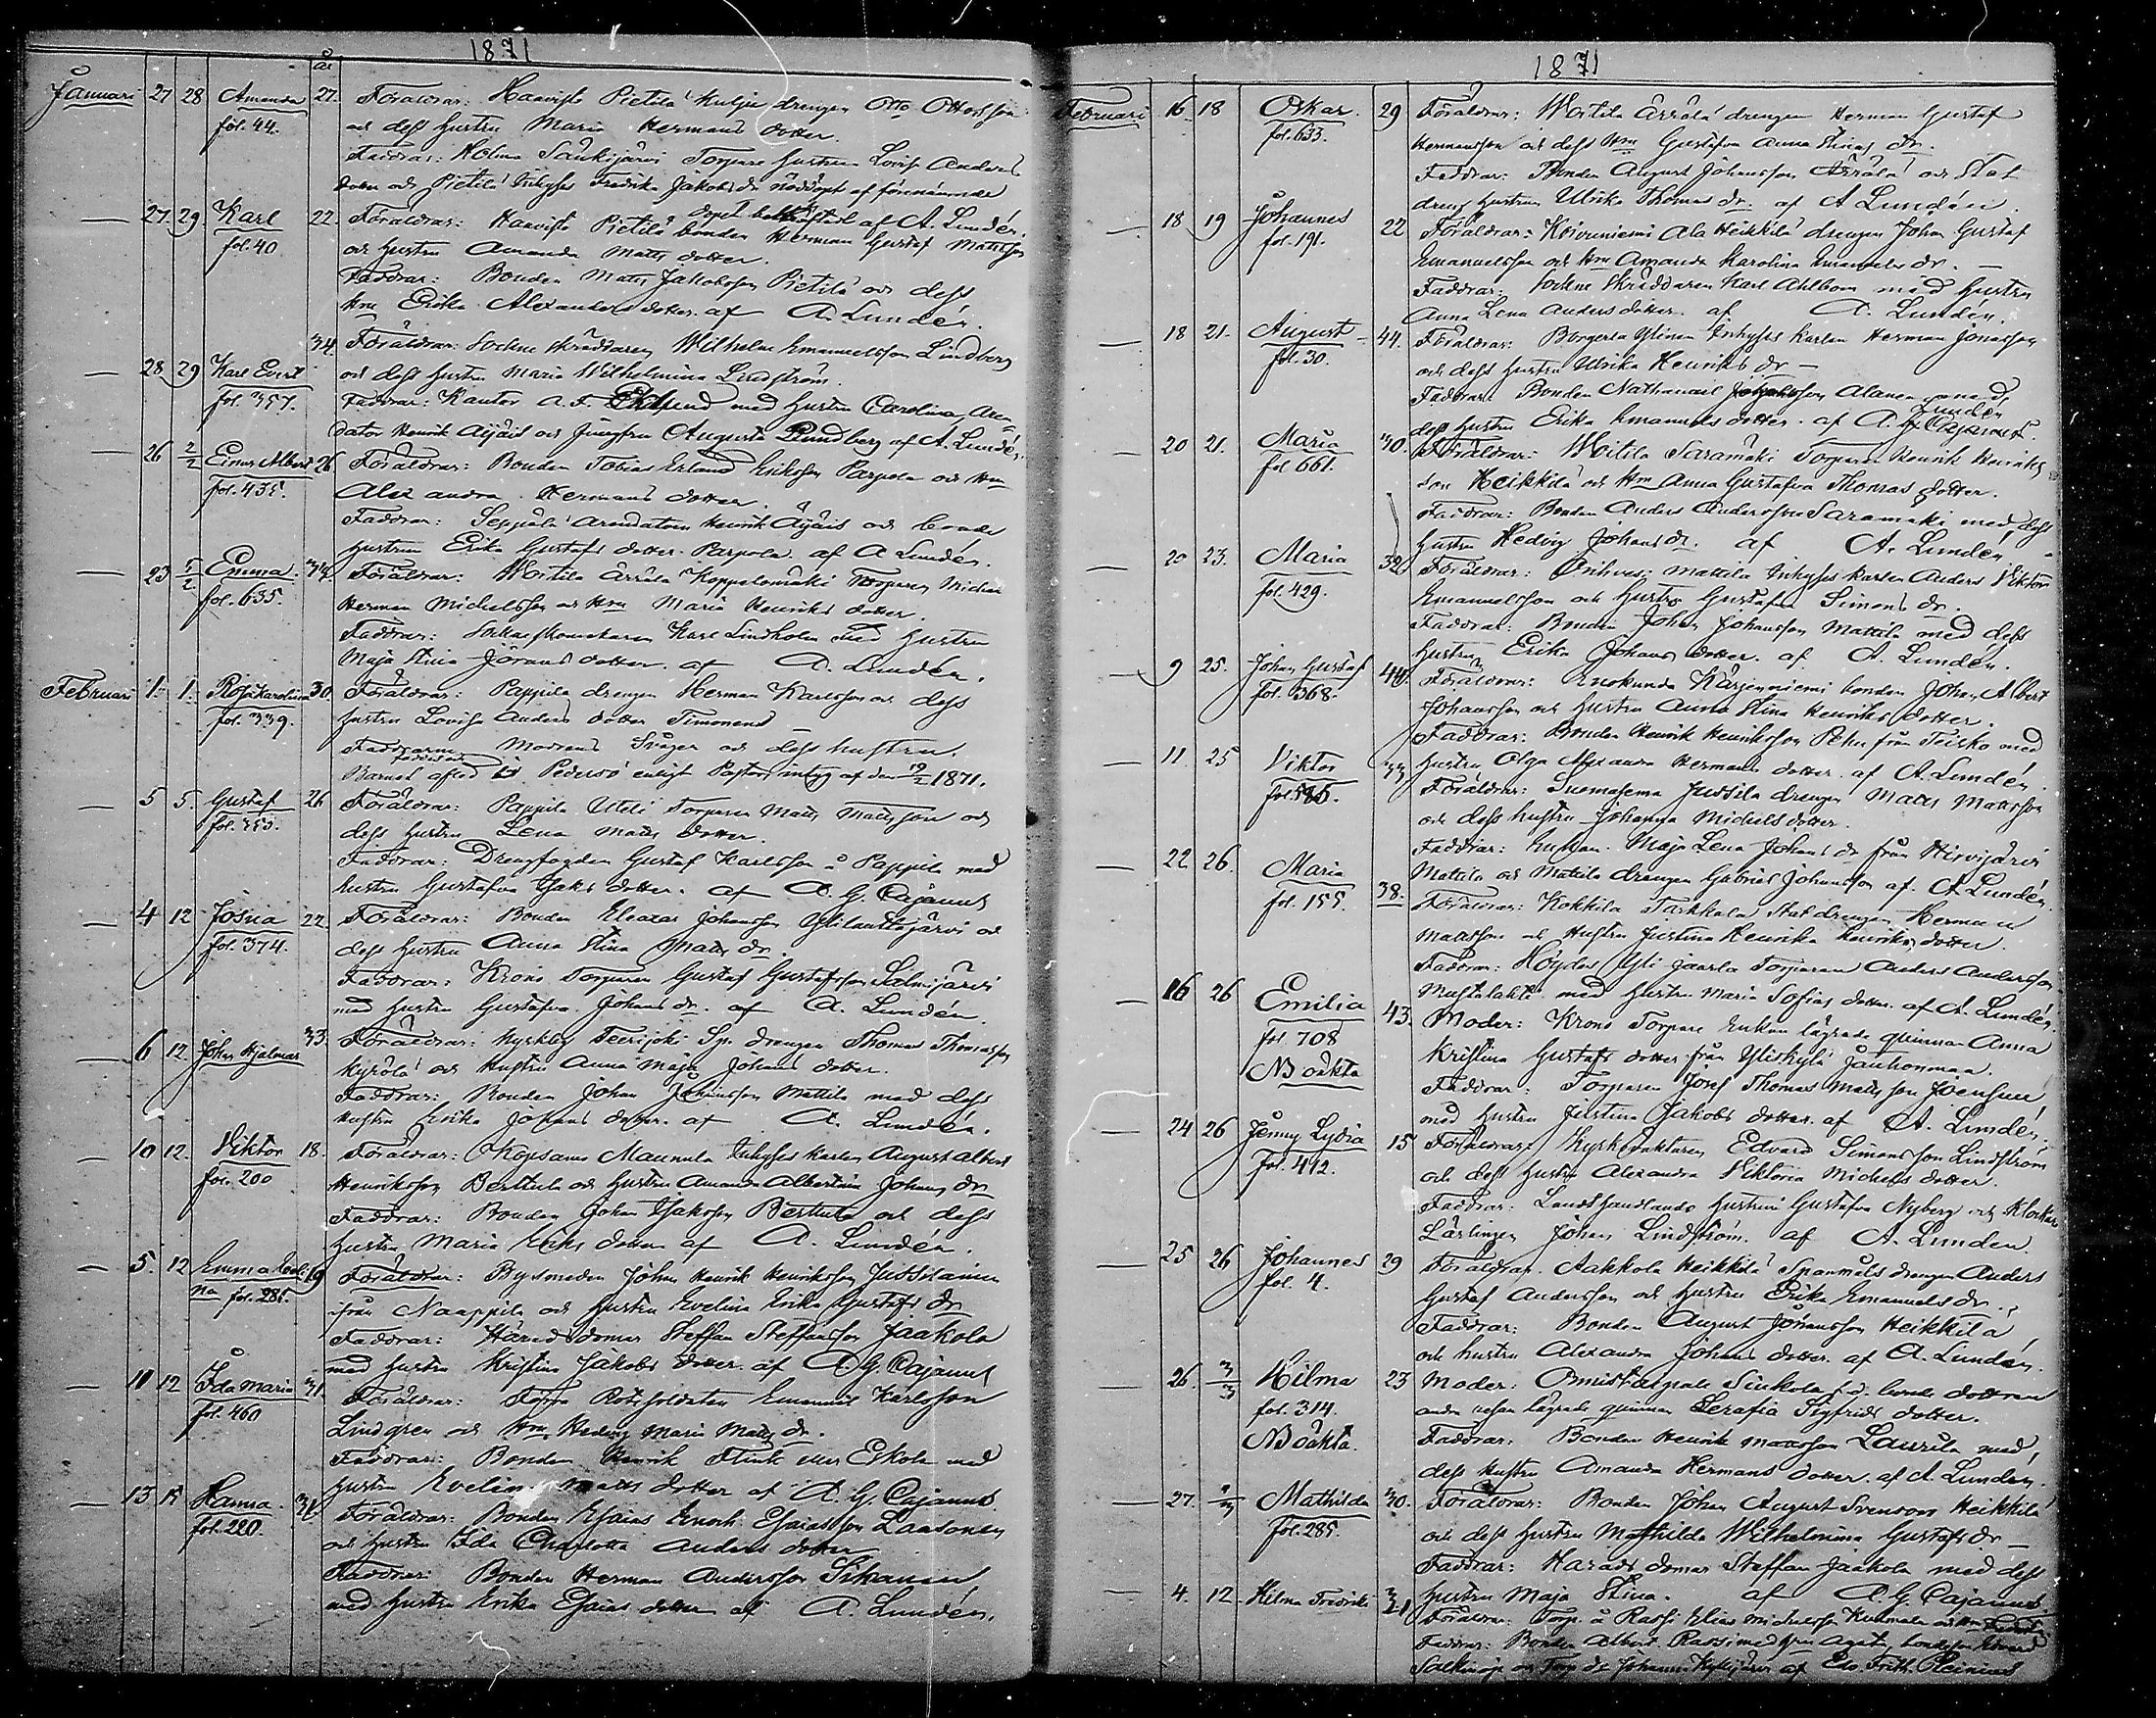 1871
år
Januari 27 28 Amanda 27. Föräldrar: Haavisto Pietilä kulje drengen Otto Ottosson
fol. 44. och dess hustru Maria Hermans dotter.
Faddrar: Kolma Sänkijärvi Torpare hustrun Lovisa Anders
dotter och Pietilä Inhyses Fredrika Jakobs dr nöddöpt af förenämnde
dopet bekräftadt af A. Lundén.
— 27 29 Karl 22. Föräldrar: Haavisto Pietilä bonden Herman Gustaf Mattsson
fol. 40 och hustru Amanda Matts dotter.
Faddrar: Bonden Matts Jakobsson Pietilä och dess
Hru Erika Alexanders dotter. af A. Lundén.
— 28 29 Karl Evert 34 Föräldrar: Sockne skräddaren Wilhelm Emanuelsson Lindberg
fol. 357. och dess hustru Maria Wilhelmina Lindström.
Faddrar: Kantor A. F. Eklund med hustru Carolina, Aren-
dator Henrik Äijäis och Jungfrun Augusta Lundberg af A. Lundén.
— 26 2/2 Einar Albert 26 Föräldrar: Bonden Tobias Erland Eriksson Parpola och Hru
fol. 435. Alexandra Hermans dotter.
Faddrar: Seppälä Arendatorn Henrik Äijäis och bonde
hustrun Erika Gustafs dotter Parpola. af A. Lundén.
— 23 5/2 Emma 34 Föräldrar: Moitila Ärrälä Koppelomäki Torparen Michel
fol. 635. Herman Michelsson och Hru Maria Henriks dotter.
Faddrar: Sockneskomakaren Karl Lindholm med hustru
Maja Stina Jörans dotter. af A. Lundén.
Februari 1. 1. Rosa Karolina 30. Föräldrar: Pappila drengen Herman Karlsson och dess
fol. 339. hustru Lovisa Anders dotter Timonen
Faddrarne Modrens Svåger och dess hustru.
Barnet afled i Pedersö enligt Pastors intyg af den 19/2 1871.
— 5 5. Gustaf 26 Föräldrar: Pappila Uteli Torparen Matts Mattsson och
fol. 353. dess hustru Lena Matts dotter.
Faddrar: Drengfogden Gustaf Karlsson å Pappila med
hustru Gustafva Isaks dotter. af A. G. Cajanus
— 4 12 Josua 22. Föräldrar: Bonden Eleazar Johansson Ylilauttajärvi och
fol. 374. dess hustru Anna Stina Matts dr.
Faddrar: Krono Torparen Gustaf Gustafsson Salmijärvi
med hustru Gustafva Johans dr. af A. Lundén.
— 6 12 Johan Hjalmar 33. Föräldrar: Kyrkby Teerijoki Sp. drengen Thomas Thomasson
Kyrölä och hustru Anna Maja Johans dotter.
Faddrar: Bonden Johan Johansson Mattila med dess
hustru Erika Johans dotter. af A. Lundén.
— 10 12. Viktor 18. Föräldrar: Kopsamo Maunula Inhyses karlen August Albert
fol. 200 Henriksson Berttula och hustru Amanda Albertina Johans dr
Faddrar: Bonden Johan Isaksson Berttula och dess
hustru Maria Eriks dotter af A. Lundén.
— 5. 12 Emma Eveli- 19 Föräldrar: Bysmeden Johan Henrik Henriksson Jussilainen
na fol. 286. från Naappila och hustru Evelina Erika Gustafs dr
Faddrar: Häradsdomar Steffan Steffansson Jaakola
med hustru Kristina Jakobs dotter. af A. G. Cajanus
— 11 12 Ida Maria 31. Föräldrar: Förra Rotesoldaten Emanuel Karlsson
fol. 460 Lindgren och Hru Hedvig Maria Matts dr.
Faddrar: Bonden Henrik Flink eller Eskola med
hustru Evelina Matts dotter af A. G. Cajanus.
— 13 15 Hanna. 31. Föräldrar: Bonden Esaias Enock Esaiasson Laasonen
fol. 220. och hustru Ida Charlotta Anders dotter
Faddrar: Bonden Herman Andersson Sikanen
med hustru Erika Esaias dotter af A. Lundén.
1871
Februari 16 18 Oskar. 29 Föräldrar: Moitila Ärrälä drengen Herman Gustaf
fol. 633. Hermansson och dess Hru Gustafva Anna Stinas dr.
Faddrar: Bonden August Johansson Ärrälä och Stat
dreng hustrun Ulrika Thomas dr. af A. Lundén.
— 18 19 Johannes 22 Föräldrar: Koivuniemi Ala Heikkilä drengen Johan Gustaf
fol. 191. Emanuelsson och Hru Amanda Karolina Emanuels dr. —
Faddrar: Sockne skräddaren Karl Ahlbom med hustru
Anna Lena Anders dotter. af A. Lundén.
— 18 21. August 44. Föräldrar: Ylinen Inhyses karlen Herman Jonasson
fol. 30. och dess hustru Ulrika Henriks dr —
Faddrar: Bonden Nathanael Alanen med
dess hustru Erika Emanuels dotter. af A. Lundén
— 20 21. Maria 30. Föräldrar: Moitila Saramäki Torparen Henrik Henriks
fol 661. son Heikkilä och Hru Anna Gustafva Thomas dotter.
Faddrar: Bonden Anders Andersson Saramäki med dess
hustru Hedvig Johans dr. af A. Lundén
— 20 23. Maria 32 Föräldrar: Orihvesi Mattila Inhyses karlen Anders Viktor
fol. 429. Emanuelsson och hustru Gustafva Simons dr.
Faddrar: Bonden Johan Johansson Mattila med dess
hustru Erika Johans dotter. af A. Lundén.
— 9 25. Johan Gustaf 40. Föräldrar: Enokunda Kärjenniemi bonden Johan Albert
fol. 368. Johansson och hustru Anna Stina Henriks dotter.
Faddrar: Bonden Henrik Henriksson Peltu från Teisko med
hustru Olga Alexandra Hermans dotter. af A. Lundén
— 11 25 Viktor 33 Föräldrar: Suomasema Jussila drengen Matts Mattsson
fol. 586. och dess hustru Johanna Michels dotter.
Faddrar: Enkan Maja Lena Johans dr från Hirvijärvi
Mattila och Mattila drengen Gabriel Johansson af A. Lundén.
— 22 26. Maria 38. Föräldrar: Kokkila Tarkkala Statdrengen Herman
fol. 155. Mattsson och hustru Justina Henrika Henriks dotter.
Faddrar: Yli Jaarla Torparen Anders Andersson
Mustalahti med hustru Maria Sofias dotter. af A. Lundén.
— 16 26 Emilia 43. Moder: Krono Torpare Enkan lägrade quinnan Anna
fol 708 Kristina Gustafs dotter från Yliskylä
NB oäkta Faddrar: Torparen Josef Thomas Mattsson Joensuu
med hustru Justina Jakobs dotter. af A. Lundén.
— 24 26 Jenny Lydia 15 Föräldrar: Edvard Simonsson Lindström
fol. 412. och dess hustru Alexandra Viktoria Michels dotter.
Faddrar: Landthandlande hustrun Gustafva Nyberg och Klockar
Lärlingen Johan Lindström. af A. Lundén
— 25 26 Johannes 29 Föräldrar. Aakkola Heikkilä Spannmåls drengen Anders
fol. 4. Gustaf Andersson och hustru Erika Emanuels dr.
Faddrar: Bonden August Johansson Heikkilä
och hustru Alexandra Johans dotter. af A. Lundén.
— 26. 3/3 Hilma 23 Moder: Sinkola f.d. bonde dottren
fol. 314. andra resan lägrade quinnan Serafia Sigfrids dotter.
NB oäkta. Faddrar: Bonden Henrik Mattsson Laurila med
dess hustru Amanda Hermans dotter. af A. Lundén.
— 27. Mathilda 30. Föräldrar: Bonden Johan August Svensson Heikkilä
fol. 285. och dess hustru Mathilda Wilhelmina Gustafs dr —
Faddrar: Härads domar Steffan Jaakola med dess
hustru Maja Stina. af A. G. Cajanus
— 4. 12. Hilma Fredrika 21 Föräldrar: Torp. å Rassi Elias Michelsson
Faddrar: Bonden Albert Rassi med hru Agata, bonde
och Torp. dr Johanna af Edv. Fridr. Heinius